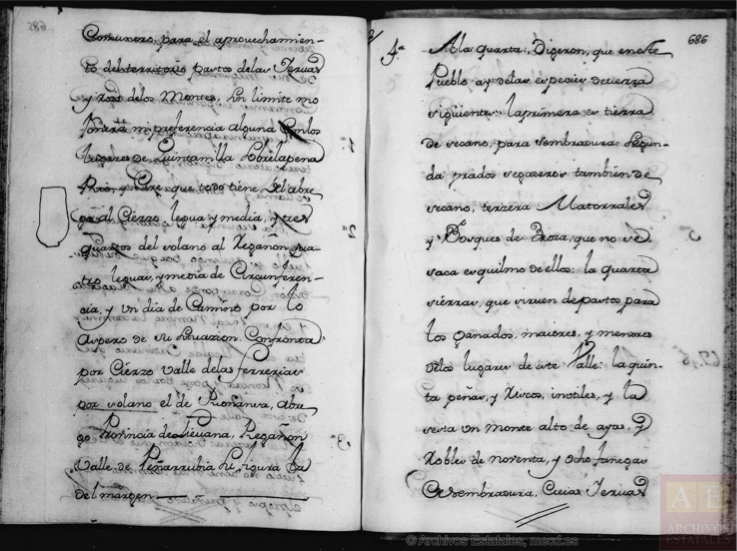 Comunero, para el aprovechamien-
to del territorio pastos delas Yervas
y roza delos Montes, sin limite mo
jonera ni preferencia alguna Conlos
Lugares de Quintanilla Sobrelapeña
Rio, y Cires, que todo tiene, del abre
go al Cierzo legua y media, y tres
quartos del solano al Regañon qua
tro leguas, y media de Circunferen-
cia, y Un dia de Camino por lo
Aspero de su situazion. Confronta
por Cierzo Valle delas ferrerias
por solano el de Rionansa, abre
go Provincia de Lievana, Regañon
Valle de Peñarrubia su figura la
del margen
686
4ª
A la quarta: Digeron, que eneste
Pueblo ay delas especies detierra
siguientes: laprimera es tierra
de secano, para sembradura: Segun-
da prados segaderos tambien de
secano, terzera Matorrales
y Bosques de Roza, que no se
saca esquilmo de ellos: la quarta
sierras, que sirven de pastos para
los ganados, maiores, y menores
delos lugares de este Valle: la quin-
ta peñas, y Riscos, inutiles, y la
sexta Un monte alto de ayas, y
Robles de noventa, y ocho fanegas
de sembradura, Cuias Yervas
© Archivos Estatales, mecd.es
AE
ARCHIVOS
ESTATALES